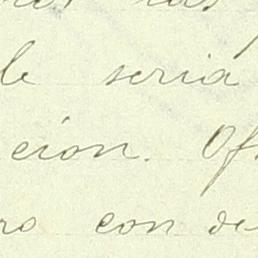 le seria
cion. Of
ro con de